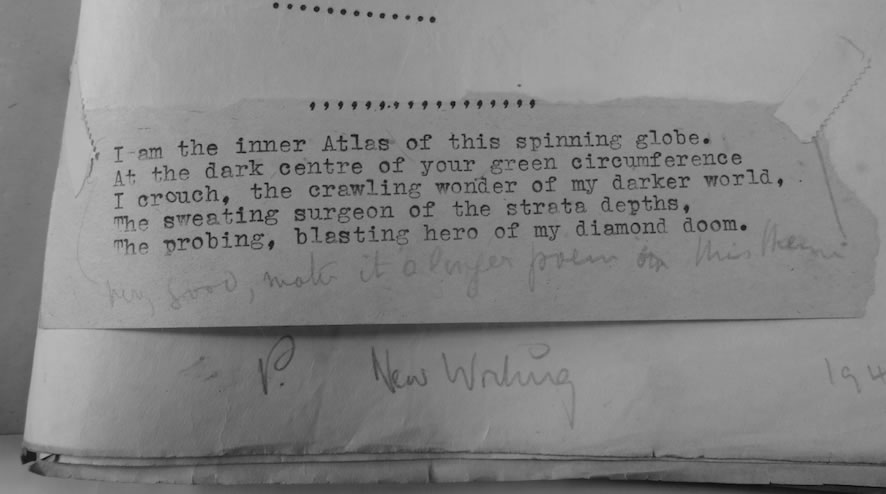 ..............
,,,,,,,,,,,,,,,,,,
I am the inner Atlas of this spinning globe.
At the dark centre of your green circumference
I crouch, the crawling wonder of my darker world,
The sweating surgeon of the strata depths,
The probing, blasting hero of my diamond doom.
very good, make it a longer poem on this theme
P. New Writing 194